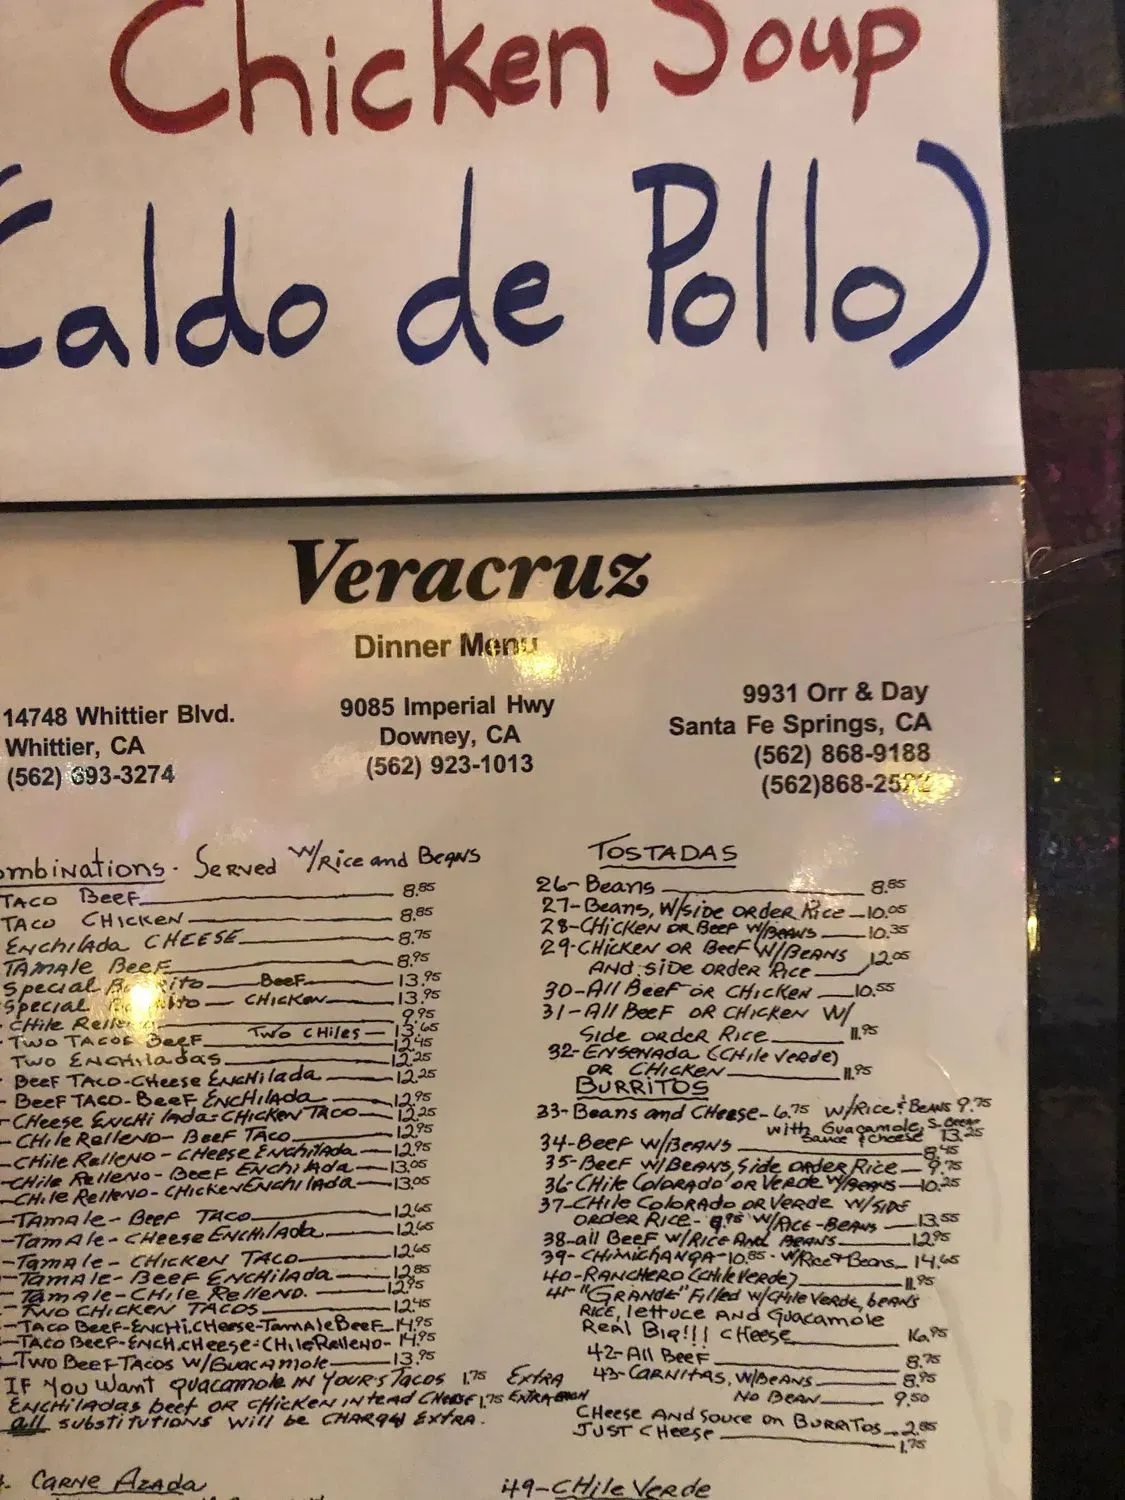 Chicken Soup
(Caldo de Pollo)
Veracruz
Dinner Menu
14748 Whittier Blvd.
Whittier, CA
(562) 693-3274
9085 Imperial Hwy
Downey, CA
(562) 923-1013
9931 Orr & Day
Santa Fe Springs, CA
(562) 868-9188
(562)868-25
ombinations. Served W/Rice and Beans
Taco Beef 8.85
Taco Chicken 8.85
Enchilada Cheese 8.75
Tamale Beef 8.95
Special Burrito Beef 13.95
Special Burrito Chicken 13.95
Chile Relleno 9.95
Two Chiles 13.65
Two Tacos Beef 12.45
Two Enchiladas 12.25
Beef Taco-Cheese Enchilada 12.25
Beef Taco-Beef Enchilada 12.95
Cheese Enchilada-Chicken Taco 12.25
Chile Relleno-Beef Taco 12.95
Chile Relleno-Cheese Enchilada 12.95
Chile Relleno-Beef Enchilada 13.05
Chile Relleno-Chicken Enchilada 13.05
Tamale-Beef Taco 12.65
Tamale-Cheese Enchilada 12.65
Tamale-Chicken Taco 12.65
Tamale-Beef Enchilada 12.85
Tamale-Chile Relleno. 12.95
Two Chicken Tacos 12.45
Taco Beef-Enchi.Cheese-Tamale Beef 14.95
Taco Beef-Ench.Cheese-Chile Relleno 14.95
Two Beef Tacos W/Guacamole 13.95
If You Want Guacamole in Yours Tacos 1.75 Extra
Enchiladas beef or Chicken intead Cheese 1.75 Extra
all substitutions will be Chargd Extra.
Carne Azada
Tostadas
26-Beans 8.85
27-Beans, W/side order Rice 10.05
28-Chicken or Beef W/Beans 10.35
29-Chicken or Beef W/Beans
And side order Rice 12.05
30-All Beef or Chicken 10.55
31-All Beef or Chicken W/
Side order Rice 11.95
32-Ensenada (Chile verde)
or Chicken 11.95
Burritos
33-Beans and Cheese-6.75 W/Rice & Beans 9.75
with Guacamole, S.
Sauce & cheese 13.25
34-Beef W/Beans 8.45
35-Beef W/Beans, Side order Rice 9.75
36-Chile Colorado or Verde W/Beans 10.25
37-Chile Colorado or Verde W/side
order Rice- W/Rice-Beans 13.55
38-all Beef W/Rice And Beans 12.95
39-Chimichanga-10.85-W/Rice & Beans 14.65
40-Ranchero (Chile Verde) 11.95
41-"Grande" Filled W/Chile Verde, beans
Rice, lettuce and Guacamole
Real Big!!! Cheese 16.95
42-All Beef 8.75
43-Carnitas, W/Beans 8.95
No Bean 9.50
Cheese And Souce on Burritos 2.85
Just Cheese 1.75
49-Chile Verde